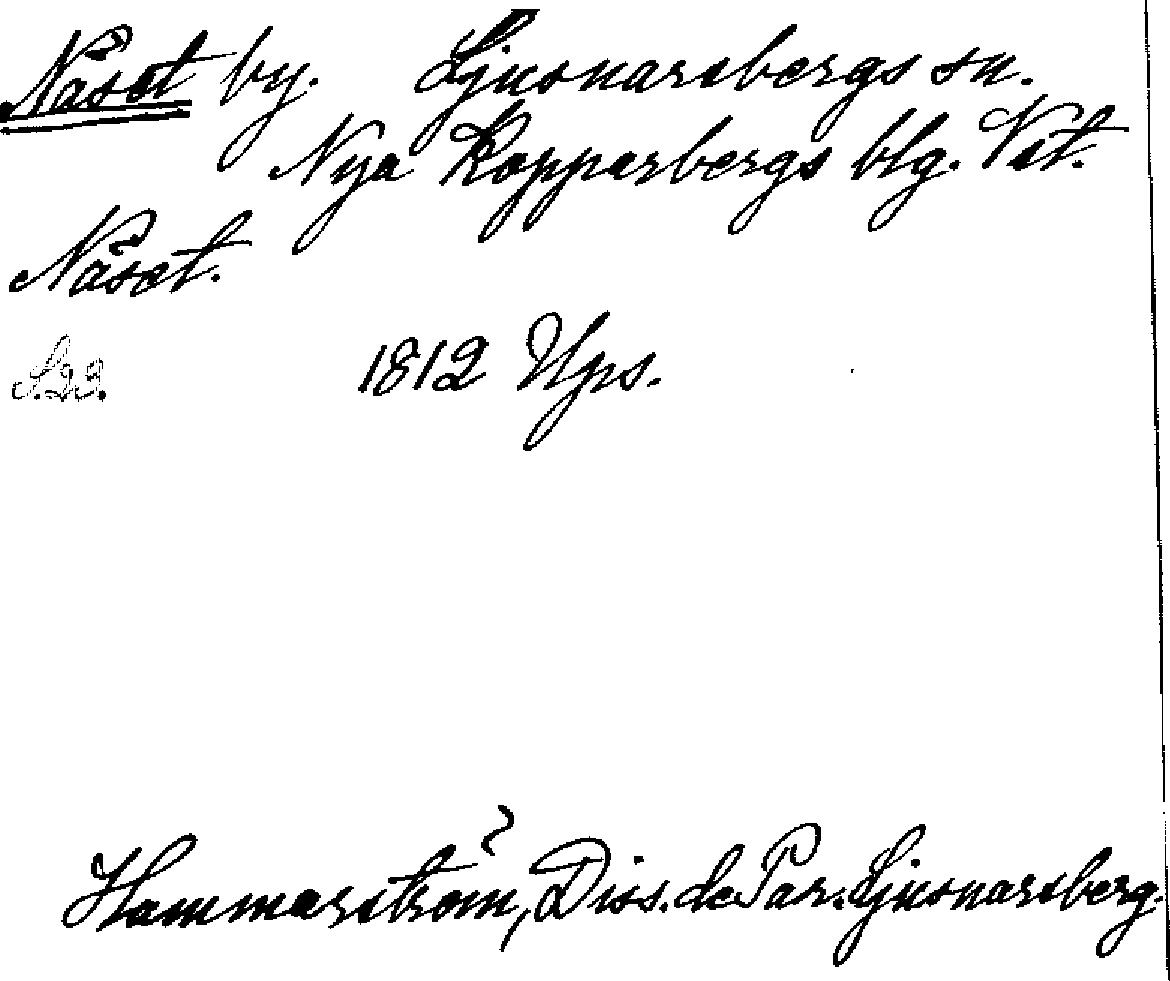 Näset by. Ljusnarsbergs sn.
Nya Kopparbergs blg. Vst.
Näset.
S.22. 1812 Ups.
Hammarström, Diss. de Par. Ljusnarsberg.